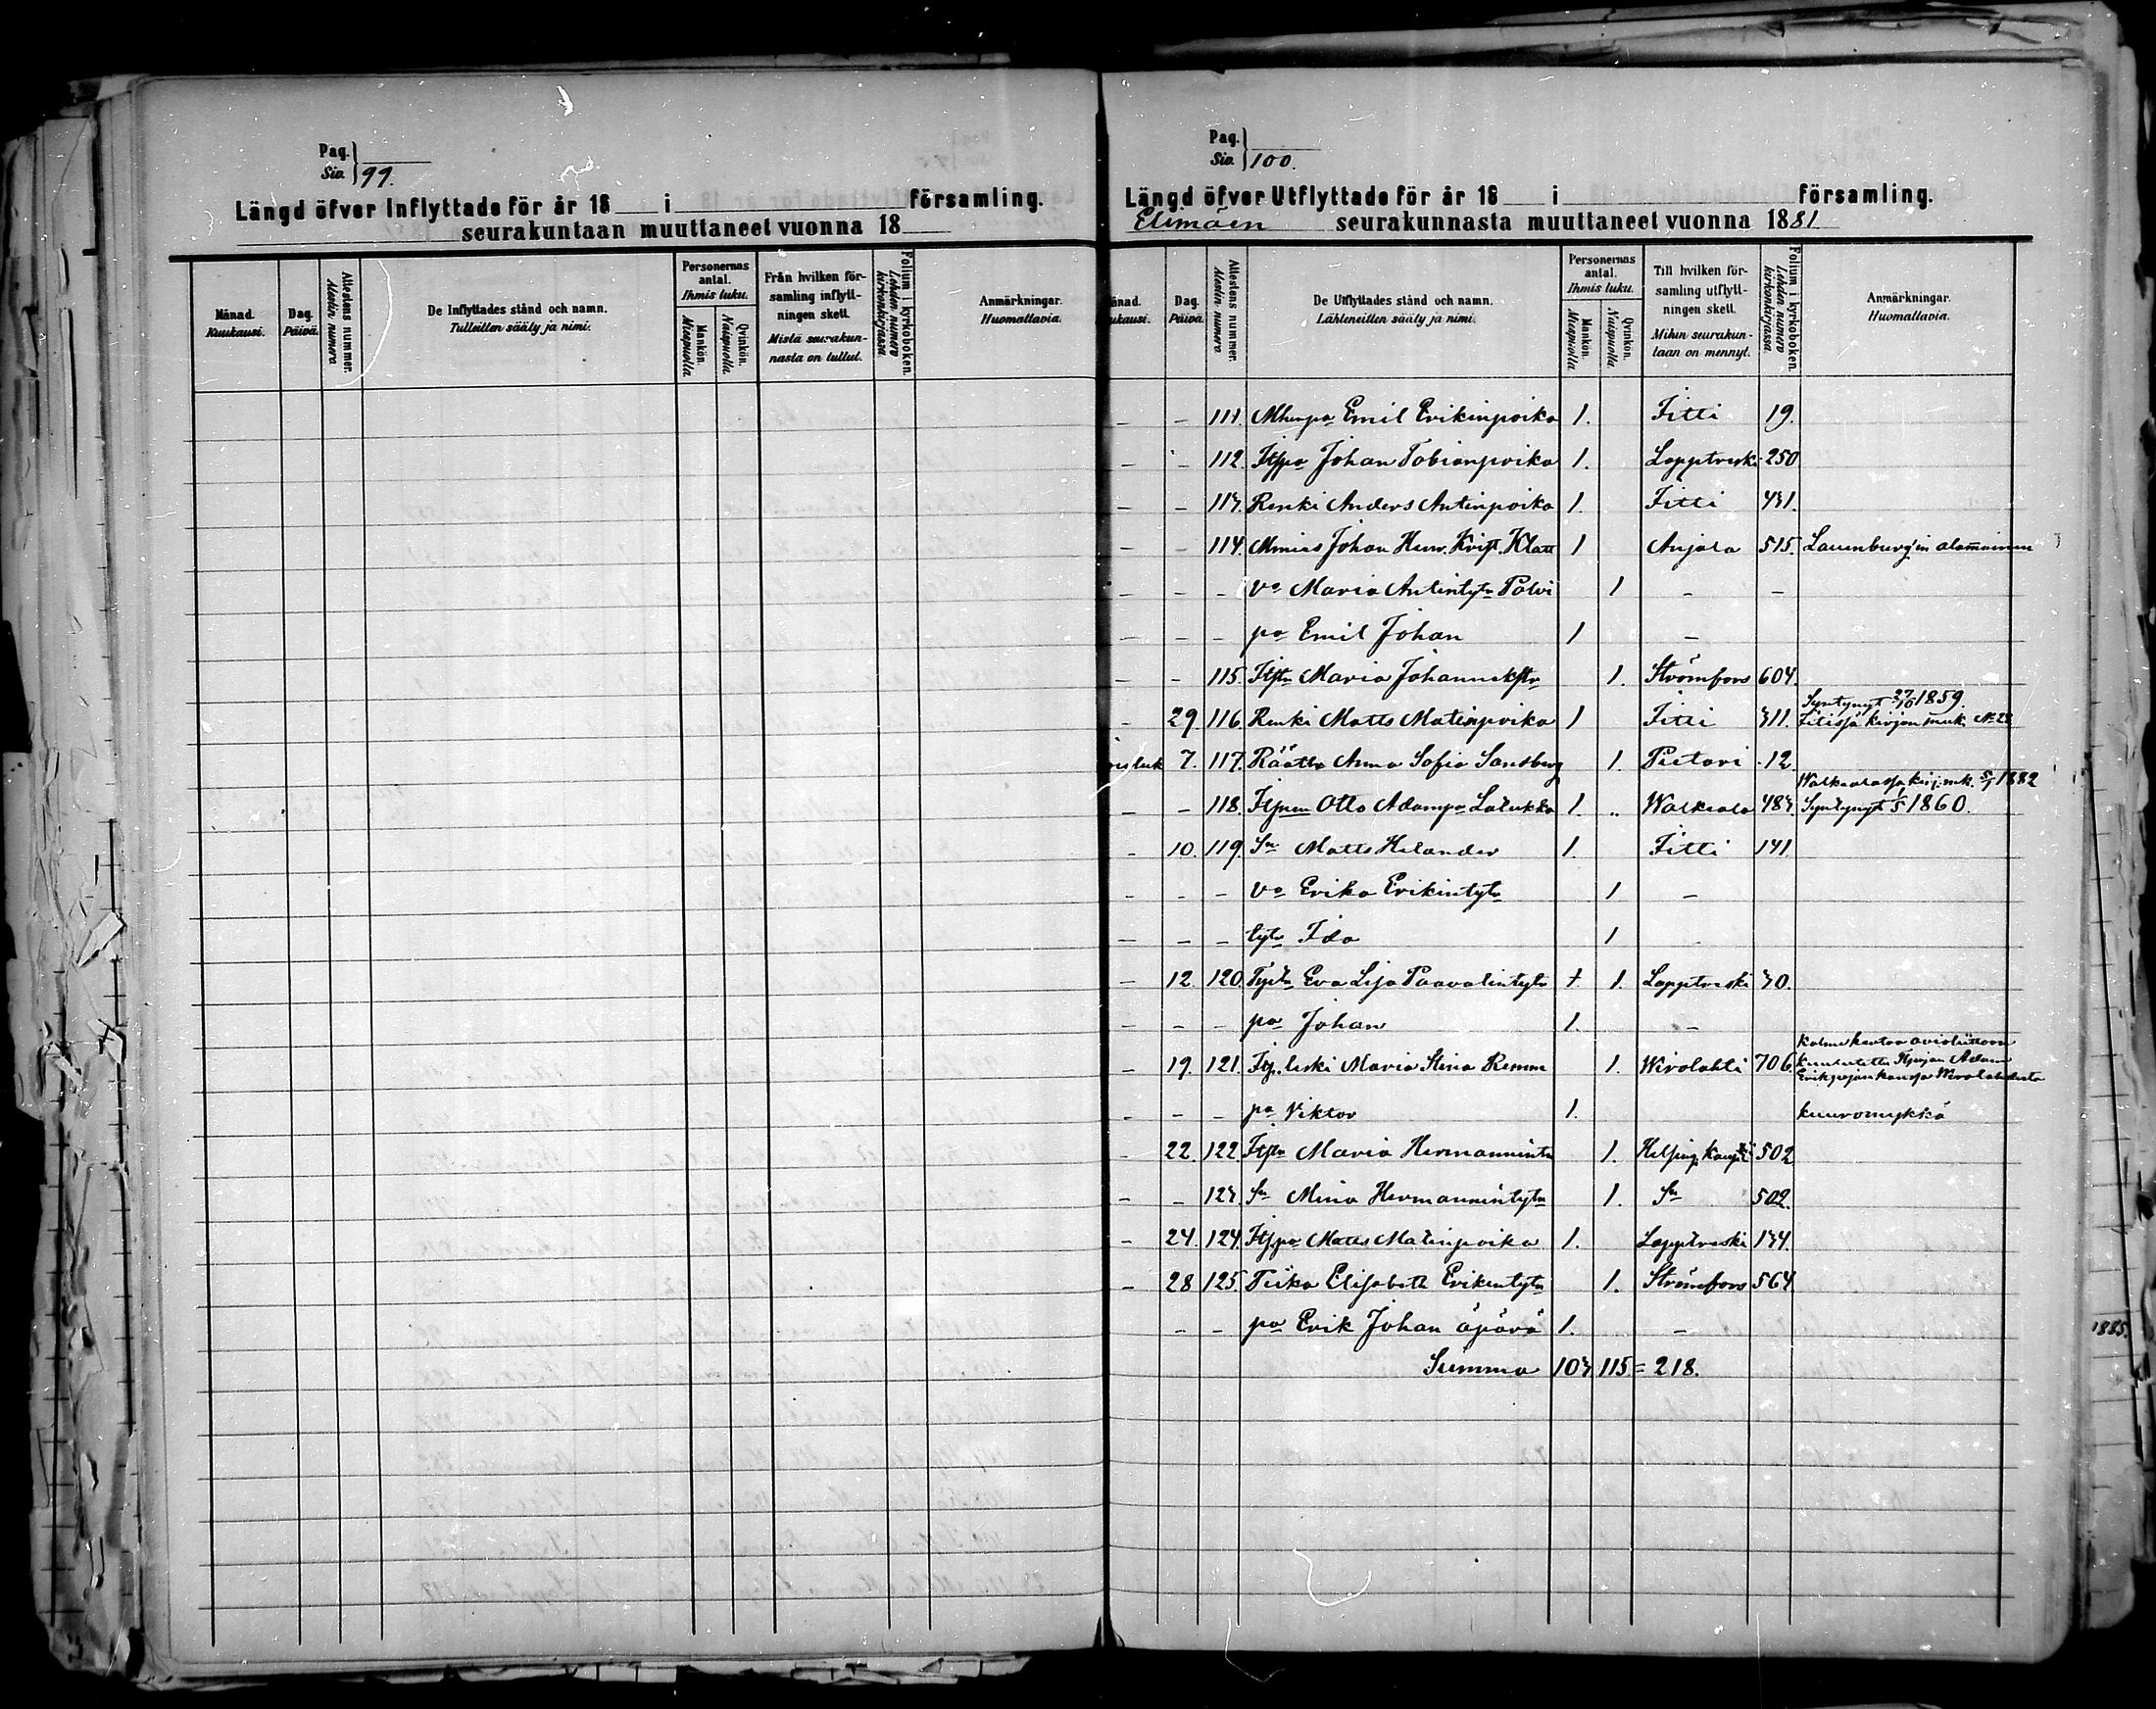 Pag.
Siv. 99.
Längd öfver Inflyttade för år 18 i församling.
seurakuntaan muuttaneet vuonna 18
Månad. Kuukausi.
Dag. Päivä.
Attestens nummer. Alestin numero.
De Inflyttades stånd och namn. Tulleitten sääty ja nimi.
Personernas antal. Ihmis luku.
Mankön. Miespuolia
Qvinkön. Naispuolia.
Från hvilken församling inflyttningen skett. Mistä seurakunnasta on tullut.
Folium i kyrkoboken. Lehden numero kirkonkirjassa.
Anmärkningar. Huomattavia.
Pag.
Siv. 100.
Längd öfver Utflyttade för år 18 i församling.
Elimäen seurakunnasta muuttaneet vuonna 1881
ånad. ukausi.
Dag. Päivä.
Attestens nummer. Alestin numero.
De Utflyttades stånd och namn. Lähteneitten sääty ja nimi.
Personernas antal. Ihmis luku.
Mankön. Miespuolia
Qvinkön. Naispuolia.
Till hvilken församling utflyttningen skett. Mihin seurakuntaan on mennyt.
Folium i kyrkoboken. Lehden numero kirkonkirjassa
Anmärkningar. Huomattavia.
– – 111. Emil Erikinpoika 1. Iitti 19.
– – 112. Itspa Johan Tobianpoika 1. Lapptreski 250
– – 113. Renki Anders Antinpoika 1. Iitti 431.
– – 114. Johan Henr. Krist. Klatt 1 Anjala 515. Lauenburg'in alamainen
– – – va Maria Antintytr Polvi 1 – –
– – – pa Emil Johan 1 –
– – 115. Itstr Maria Johannekstr 1. Strömfors 604.
Syntynyt 27/10 1859.
– 29. 116. Renki Matts Matinpoika 1 Iitti 311. Iitissä kirjan muk. No 28
luk 7. 117. Räätli Anna Sofia Sandberg 1. Pietari 12
Walkealassa kirj. mk. 5/1 1882
– – 118. Otto Adampa Latukka 1. „ Walkeala 483. Syntynyt 5 1860.
– 10. 119. Sn Matts Helander 1. Iitti 141
– – – va Erika Erikintytr 1 –
– – – tytr Ida 1 –
– 12. 120. Eva Lisa Paavalintytr + 1. Lapptreski 30.
– – – pa Johan 1. –
kolme kertaa avioliittoon
– 19. 121. Itp. leski Maria Stina Remm 1. Wirolahti 706. kuulutettu Adam
Erikpojan kanssa Wirolahdesta
– – – pa Viktor 1. kuuromykkä
– 22. 122. Itstr Maria Hermannintr 1. Helsing. kaup. 502
– – 123. Sn Mina Hermannintytr 1. Sn 502.
– 24. 124. Itspa Matts Matinpoika 1. Lapptreski 134.
– 28 125. Piika Elisabett Erikintytr 1. Strömfors 564.
– – pa Erik Johan äpärä 1. –
Summa 103 115 = 218.
1885.